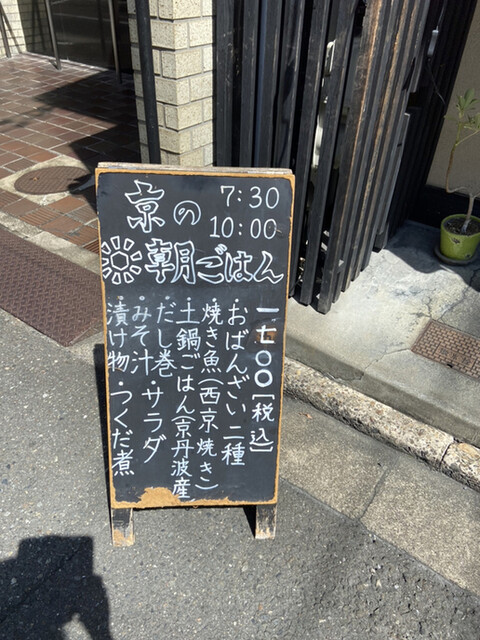 京の
7:30
10:00
朝ごはん
一七〇〇[税込]
・おばんざい二種
・焼き魚(西京焼き)
・土鍋ごはん(京丹波産
・だし巻・サラダ
・みそ汁
漬け物・つくだ煮